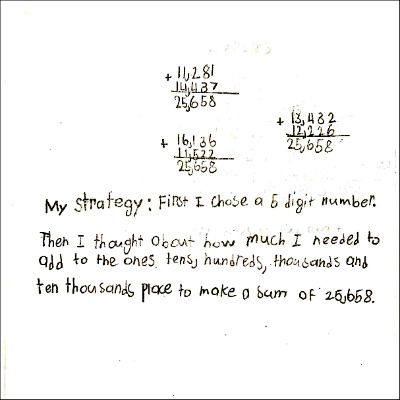 + 11,281
14,437
25,658
+ 13,432
12,226
25,658
+ 16,136
11,522
25,658
My strategy: First I chose a 5 digit number.
Then I thought about how much I needed to
add to the ones, tens, hundreds, thousands and
ten thousands place to make a sum of 25,658.